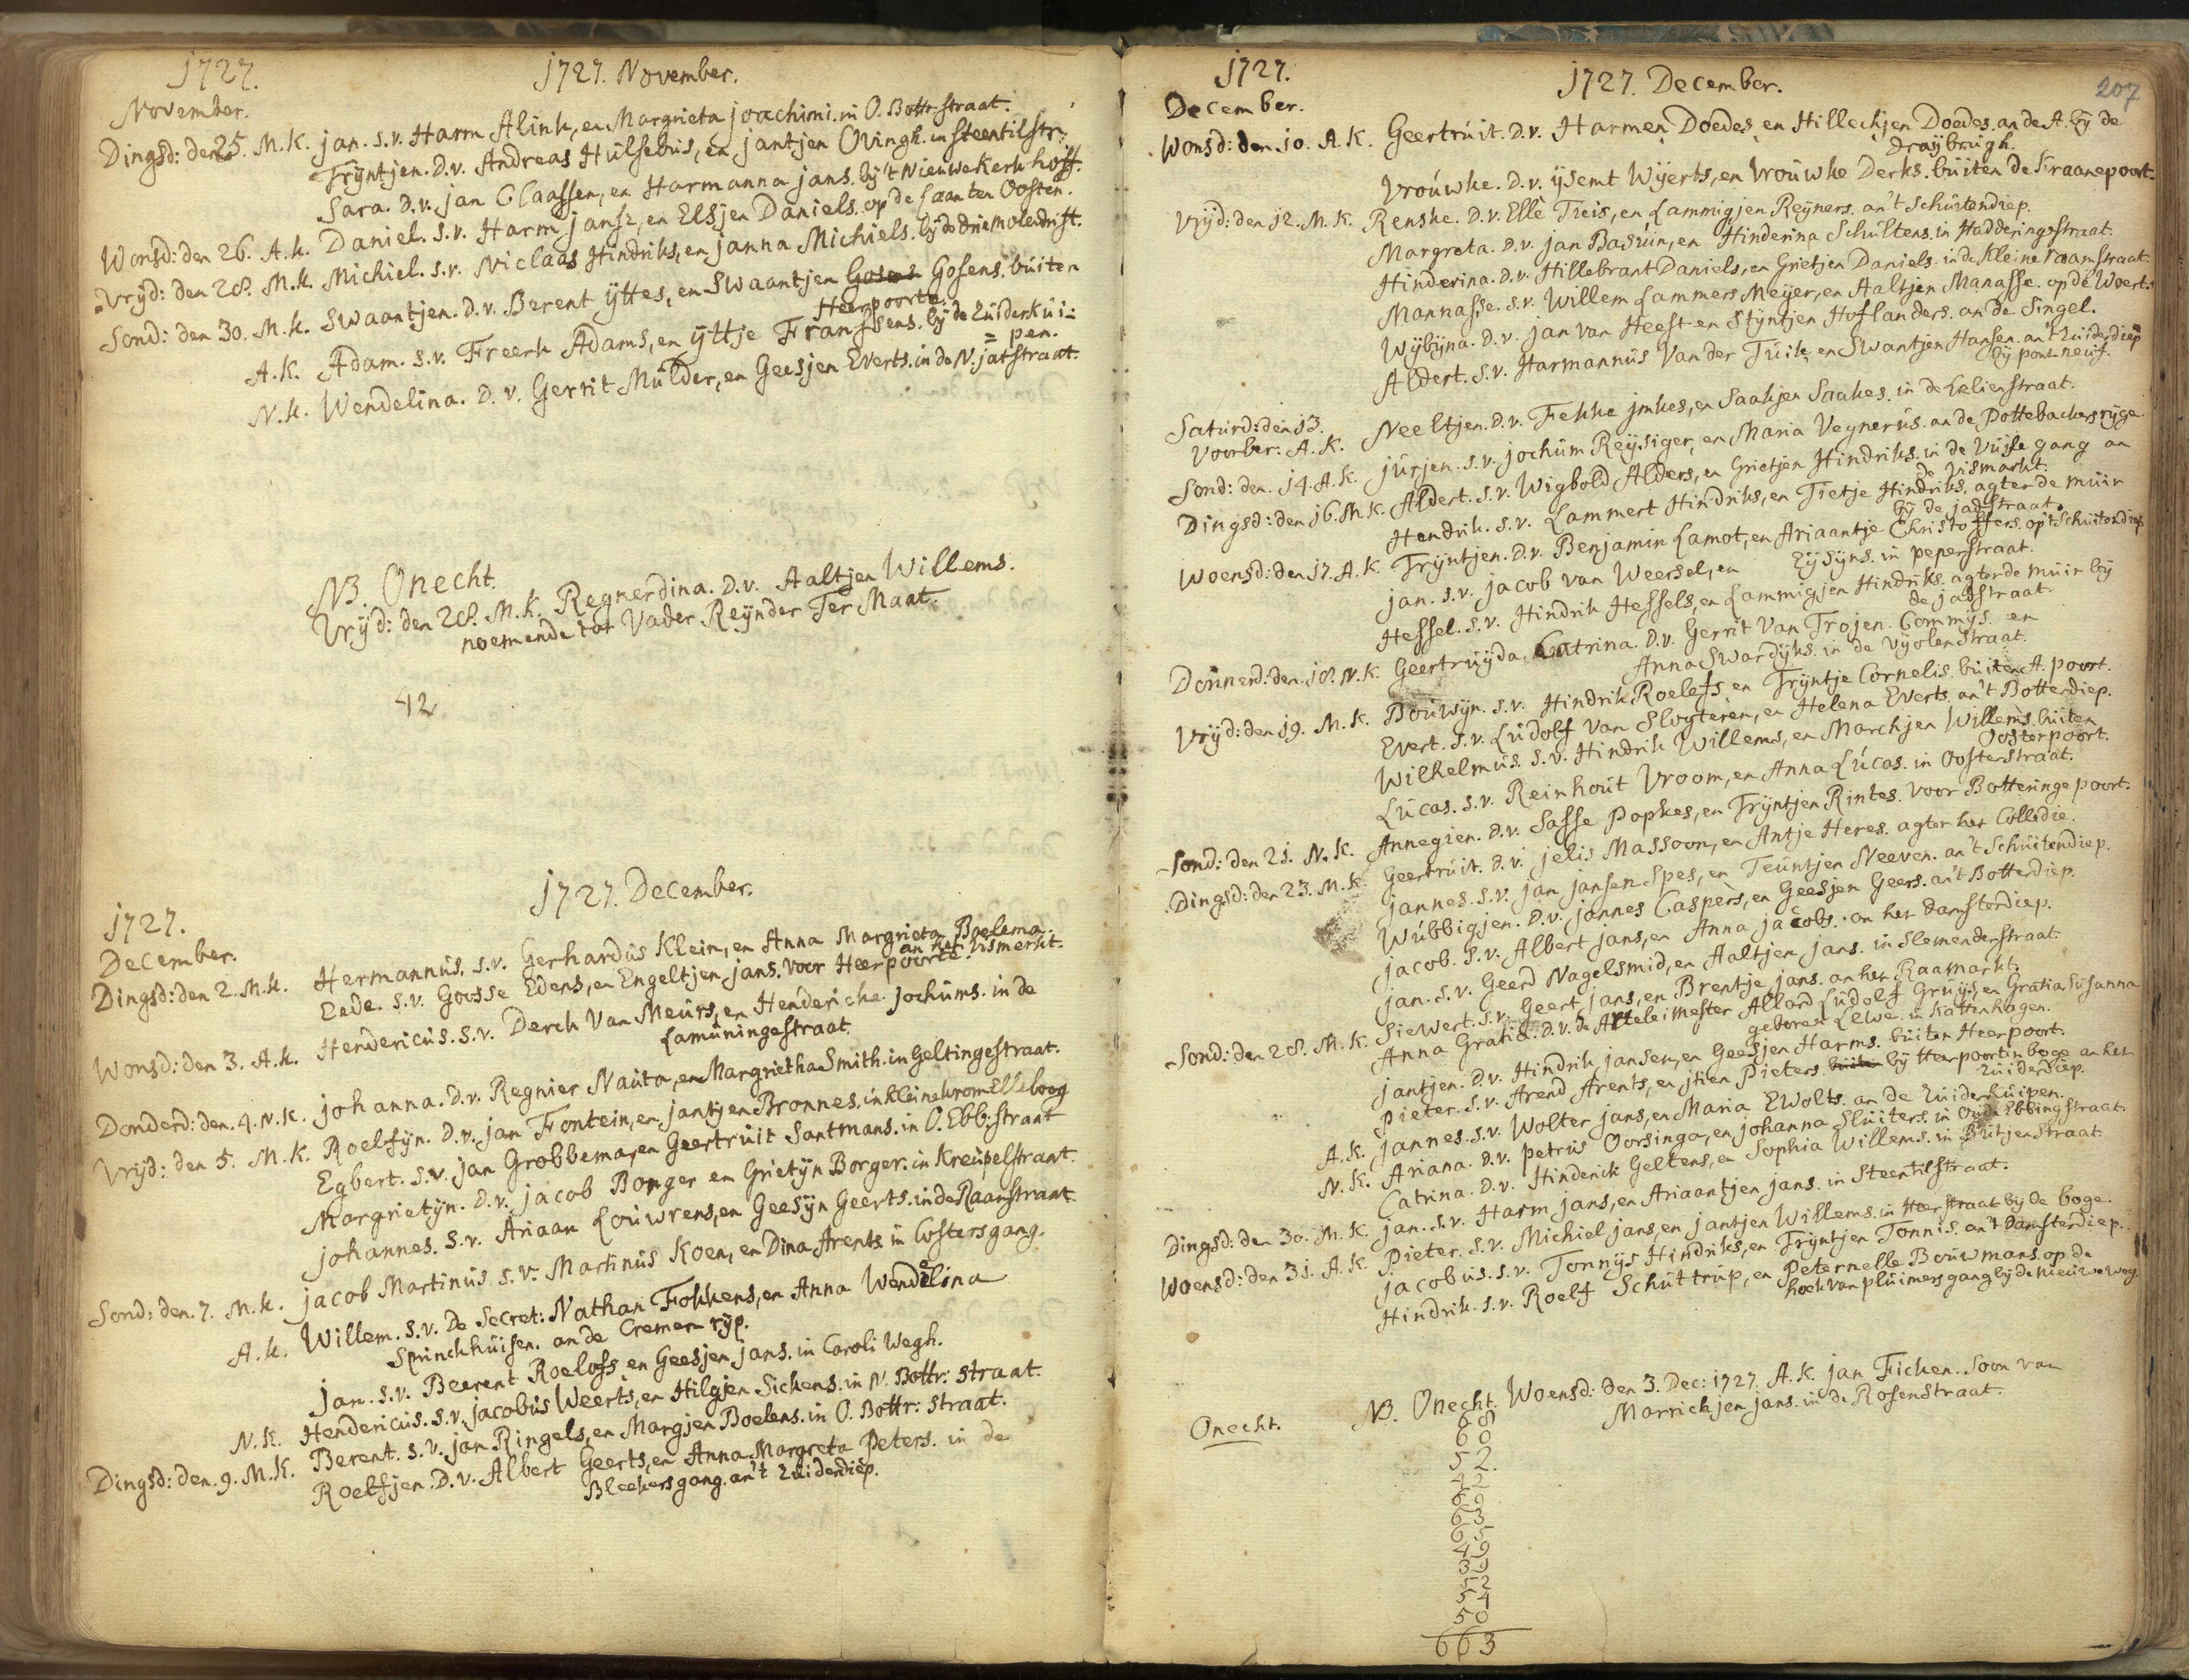 1727.
1727. November.
November.
Dingsd: den 25. M.K. jan. s.v. Harm Alink, en Margrieta joachimi. in O. Bottr straat.
Trÿntjen. D.v. Andreas Hulsebus, en jantjen Ovingh. in Steentilstr:
Sara. D.v. jan Claassen, en Harmanna jans. bÿ 't Nieuwe Kerk hoff.
Wonsd: den 26. A.K. Daniel. s.v. Harm jansz, en Elsjen Daniels. op de Laan ten Oosten.
Vrÿd: den 28. M.K. Michiel. s.v. Niclaas Hindriks, en janna Michiels. bÿ de driemolendrift.
Sond: den 30. M.K. Swaantjen. D.v. Berent ÿttes, en Swaantjen Gosens Gosens. buiten
Heerpoorte.
A.K. Adam. s.v. Freerk Adams, en ÿttje Franssens. bÿ de Zuiderkui-
= pen.
N.K. Wendelina. D.v. Gerrit Mulder, en Geesjen Everts. in de N. jatstraat.
NB. Onecht.
Vrÿd: den 28. M.K. Regnerdina. D.v. Aaltjen Willems.
noemende tot Vader Reÿnder Ter Maat.
42
1727. December.
1727.
December.
Dingsd: den 2. M.K. Hermannus. s.v. Gerhardus Klein, en Anna Margrieta Boelema.
an het Vismerkt.
Eede. s.v. Gosse Edens, en Engeltjen jans. voor Heerpoorte.
Wonsd: den 3. A.K. Hendericus. s.v. Derck Van Meurs, en Hendericke jochums. in de
Lamuningestraat.
Donderd: den 4. N.K. johanna. D.v. Regnier Nauta, en Margrietha Smith. in Geltingestraat.
Vrijd: den 5. M.K. Roelfÿn. D.v. jan Fontein, en jantjen Bronnes. in kleine kromelleboog
Egbert. s.v. jan Grobbema, en Geertruit Santmans. in O. Ebb: straat
Margrietÿn. D.v. jacob Borger en Grietÿn Borger. in Kreupelstraat.
johannes. s.v. Ariaan Louwrens, en Geesÿn Geerts. in de Raamstraat.
Sond: den 7. M.K. jacob Martinus s.v. Martinus Koen, en Dina Arents. in Costersgang.
A.K. Willem. s.v. De Secret: Nathan Fokkens, en Anna Wendelina
Sprinckhuisen. an de Cremer rÿp.
jan. s.v. Beerent Roelofs en Geesjen jans. in Caroli Wegh.
N.K. Hendericus. s.v. jacobus Weerts, en Hilgjen Sickens. in N. Bottr: straat.
Dingsd: den 9. M.K. Berent. s.v. jan Ringels, en Margjen Boelens. in O. Bottr: straat.
Roelfjen. D.v. Albert Geerts, en Anna Margreta Peters. in de
Bleekersgang. an't Zuiderdiep.
1727.
1727. December.
207
December.
Wonsd: den 10. A.K. Geertruit. D.v. Harmen Doedes, en Hillechjen Doedes. an de A. bÿ de
draÿbrugh.
Vrouwke. D.v. ÿsemt Wÿerts, en Vrouwke Derks. buiten de Kraanepoort.
Vrijd: den 12. M.K. Renske. D.v. Elle Tieis, en Lammigjen Reÿners. an't Schuitendiep.
Margreta. D.v. jan Basuin, en Hinderina Schultens. in Hadderingestraat.
Hinderina. D.v. Hillebrant Daniels, en Grietjen Daniels. in de Kleine raamstraat.
Mannasse. s.v. Willem Lammers Meÿer, en Aaltjen Manasse. op de Woert.
Wÿbÿna. D.v. jan van Heest en Stÿntjen Hoflanders. an de Singel.
Aldert. s.v. Harmannus Van der Tuik, en Swantjen Hansen. an't Zuiderdiep
bÿ pont neuf.
Saturd: den 13.
Voorber: A.K. Neeltjen. D.v. Fekke jmkes, en Saakjen Saakes. in de Lelienstraat.
Sond: den 14. A.K. jurjen. s.v. jochum Reÿsiger, en Maria Vegnerus. an de Pottebackersrÿge.
Dingsd: den 16. M.K. Aldert. s.v. Wigbold Alders, en Grietjen Hindriks. in de Vuile gang an
de Vismarkt.
Hendrik. s.v. Lammert Hindriks, en Tietje Hindriks. agter de muir
bÿ de jadstraat.
Woensd: den 17. A.K. Trÿntjen. D.v. Benjamin Lamot, en Ariaantje Christoffers. op 't Schuitendiep
jan. s.v. jacob van Weersel, en Eÿsÿns. in peperstraat.
Hessel. s.v. Hindrik Hessels, en Lammigjen Hindriks. agter de muir bÿ
de jadstraat.
Donnerd: den 18. N.K. Geertruÿda Catrina. D.v. Gerrit Van Trojen. Commÿs. en
Anna Swardÿks. in de Vÿolenstraat.
Vrÿd: den 19. M.K. Bouwÿn. s.v. Hindrik Roelefs en Trÿntje Cornelis. buiten A. poort.
Evert. s.v. Ludolf van Slogteren, en Helena Everts. an't Botterdiep.
Wilhelmus. s.v. Hindrik Willems, en Marchjen Willems. buiten
Oosterpoort.
Lucas. s.v. Reinhout Vroom, en Anna Lucas. in Oosterstraat.
Sond: den 21. N.K. Annegien. D.v. Sasse Popkes, en Trÿntjen Rintes. voor Botteringe poort.
Dingsd: den 23. M.K. Geertruit. D.v. jelis Massoon, en Antje Heres. agter het Colledie.
jannes. s.v. jan jansen Spes, en Teuntjen Neeven. an't Schuitendiep.
Wubbigjen. D.v. jannes Caspers, en Geesjen Geers. an't Botterdiep.
jacob. s.v. Albert jans, en Anna jacobs. an het damsterdiep.
jan. s.v. Geerd Nagelsmid, en Aaltjen jans. in Slemenderstraat.
Sond: den 28. M.K. Siewert. s.v. Geert jans, en Brentje jans. an het Raamarkt.
Anna Gratia. D.v. de Artteleimester Allard Ludolf Gruÿs, en Gratia Susanna
geboren Lewe. in Kattenhagen.
jantjen. D.v. Hindrik jansen, en Geesjen Harms. buiten Heerpoort.
Pieter. s.v. Arend Arents, en jtien Pieters. buiten bÿ Heerpoorten boge an het
Zuiderdiep.
A.K. jannes. s.v. Wolter jans, en Maria Ewolts. an de Zuiderkuipen.
N.K. Ariana. D.v. petrus Oorsinga, en johanna Sluiters. in Oude Ebbingstraat.
Catrina. D.v. Hinderik Geltens, en Sophia Willems. in Butjenstraat.
Dingsd: den 30. M.K. jan. s.v. Harm jans, en Ariaantjen jans. in Steentilstraat.
Woensd: den 31. A.K. Pieter. s.v. Michiel jans, en jantjen Willems. in Heerstraat bÿ de boge.
jacobus. s.v. Tonnÿs Hindriks, en Trÿntjen Tonnis. an't Damsterdiep.
Hindrik. s.v. Roelf Schuttrup, en Peternelle Bouwmans. op de
hoek van pluimersgang bÿ de nieuwe weg.
Onecht.
NB. Onecht. Woensd: den 3. Dec: 1727. A.K. jan Ficken. Soon van
Marrichjen jans. in de Rosenstraat.
68
60
52.
42
69
63
65
49
39
52
54
50
663